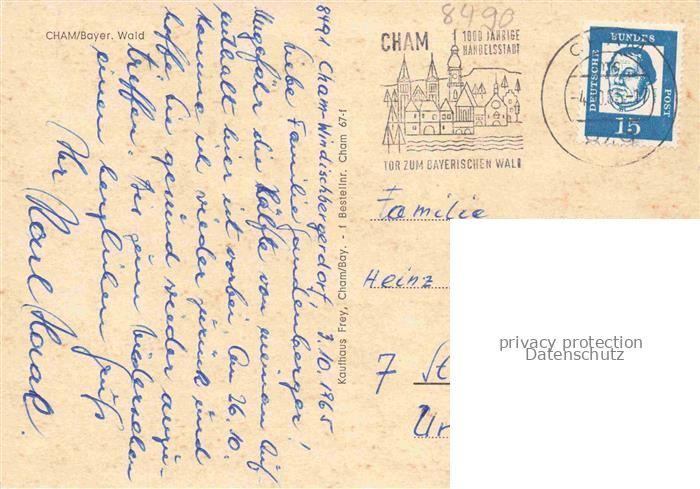 CHAM/Bayer. Wald
8491 Cham-Windischbergerdorf 3.10.1965
Liebe Familie !
Ungefähr die Hälfte von meinem Auf-
enthalt hier ist vorbei. Am 26.10.
komme ich wieder zurück und
hoffe, Sie gesund wieder anzu-
treffen. Bis zum Wiedersehen
einen herzlichen Gruß
Ihr Karl Haak.
Kaufhaus Frey, Cham/Bay. - f Bestellnr. Cham 67-f
8490
CHAM
1000 JÄHRIGE
HANDELSSTADT
TOR ZUM BAYERISCHEN WALD
DEUTSCHE BUNDES POST
15
849
Familie
Heinz
7 St
Ur
privacy protection
Datenschutz